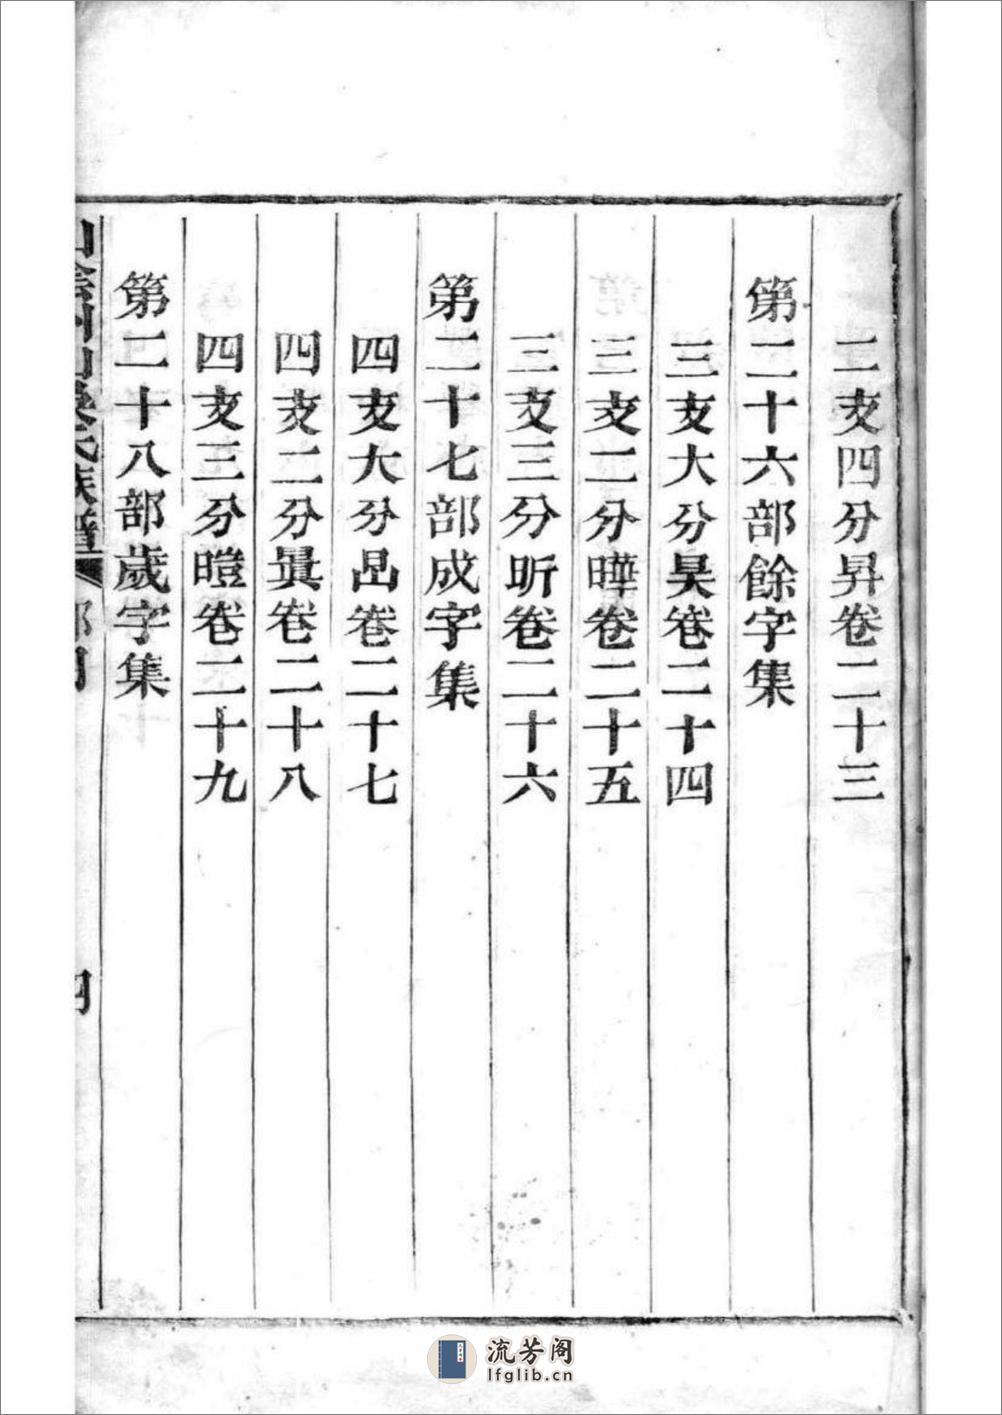 二支四分昇卷二十三
第二十六部餘字集
三支大分昊卷二十四
三支二分曄卷二十五
三支三分昕卷二十六
第二十七部成字集
四支大分昷卷二十七
四支二分㬎卷二十八
四支三分暟卷二十九
第二十八部歲字集
山陰州山吳氏族譜
四
流芳阁
lfglib.cn